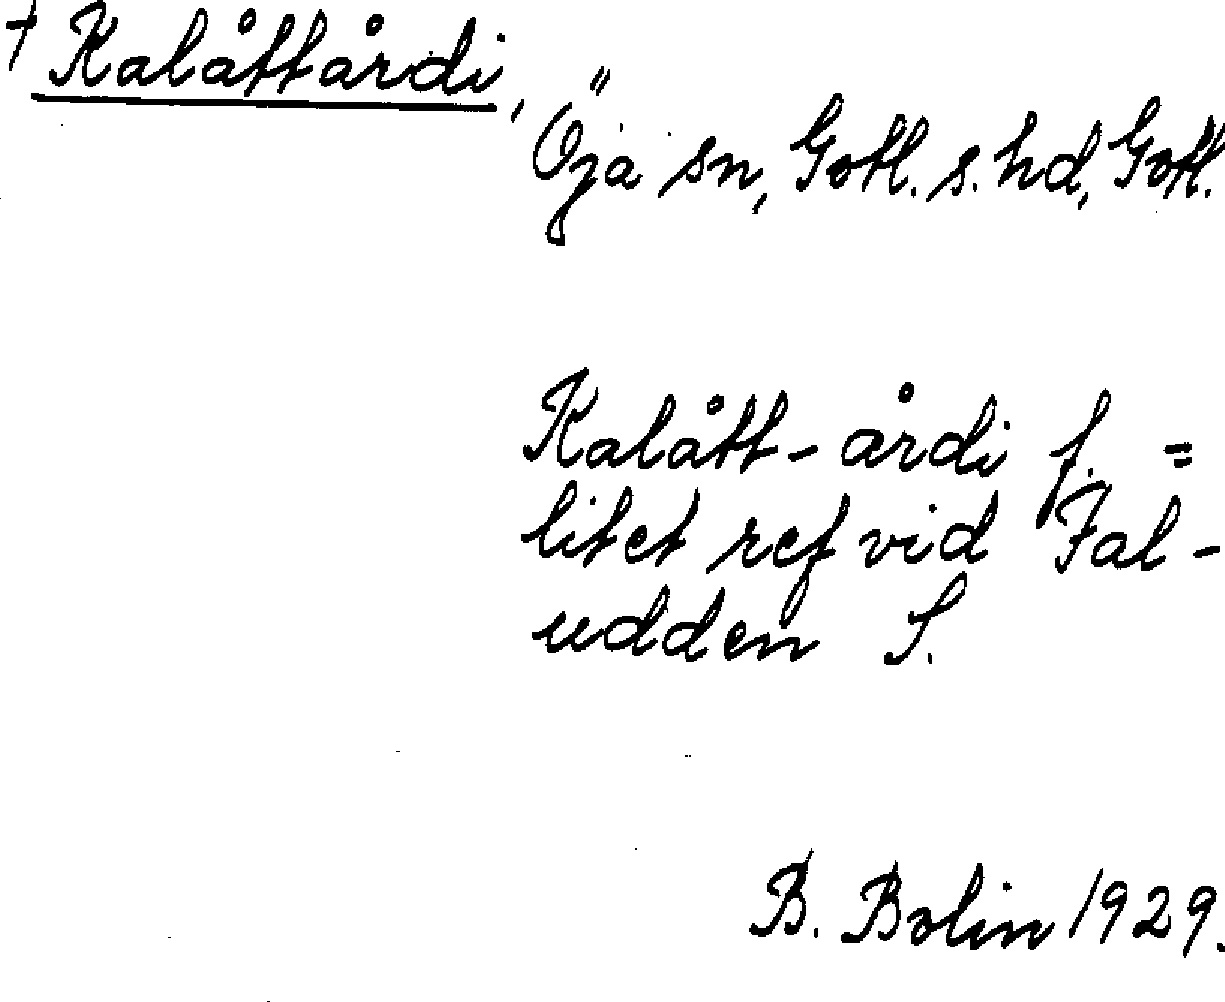 † Kalåttårdi,
Öja sn, Gotl. s. hd, Gotl.
Kalått-årdi f. =
litet ref vid Fal-
udden S.
B. Bolin 1929.